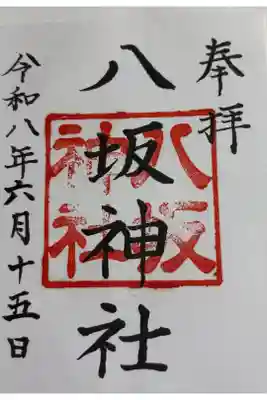 奉拝
八坂神社
八坂
神社
令和八年六月十五日